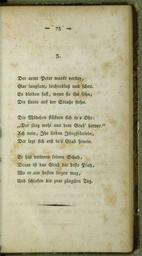 — 75 —
3.
Der arme Peter wankt vorbei,
Gar langsam, leichenblaß und scheu.
Es bleiben fast, wenn sie ihn sehn,
Die Leute auf der Straße stehn.
Die Mädchen flüstern sich in's Ohr:
„Der stieg wohl aus dem Grab' hervor.“
Ach nein, Ihr lieben Jungfräulein,
Der legt sich erst in's Grab hinein.
Er hat verloren seinen Schatz,
Drum ist das Grab der beste Platz,
Wo er am besten liegen mag,
Und schlafen bis zum jüngsten Tag.